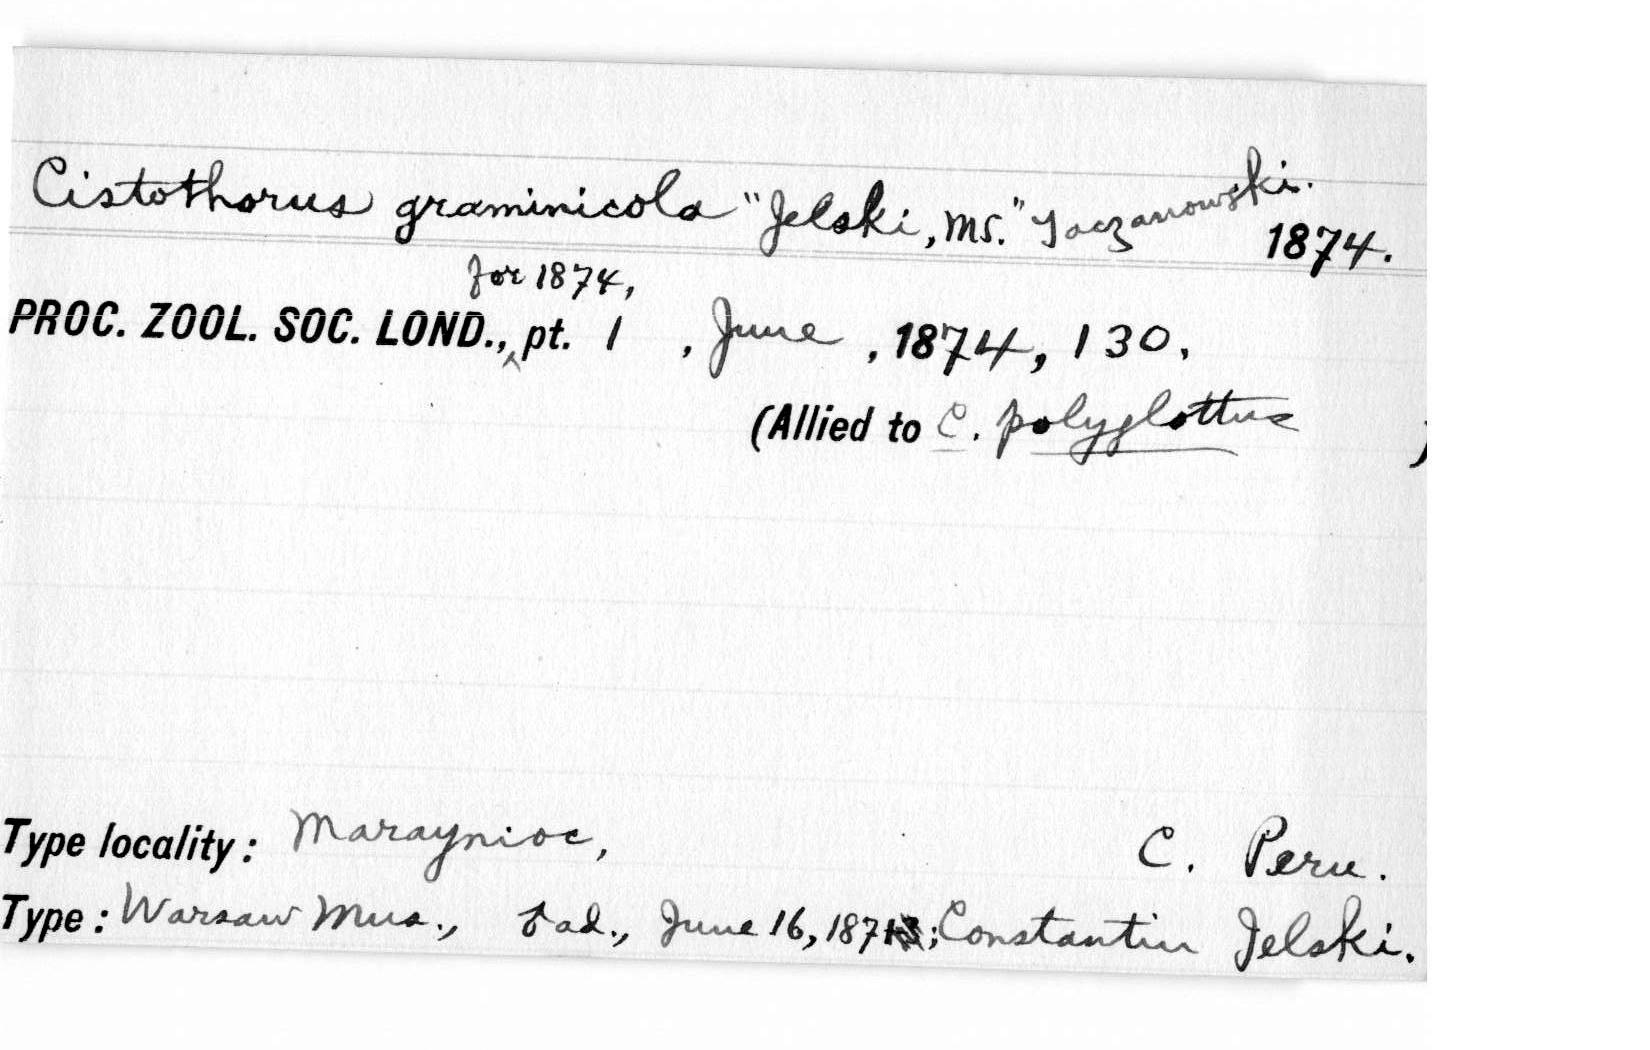 Cistothorus graminicola "Jelski, MS." Taczanowski.
1874.
for 1874,
PROC. ZOOL. SOC. LOND.,^ pt. 1 , June , 1874, 130.
(Allied to C. polyglottus )
Type locality: Maraynioc, C. Peru.
Type: Warsaw Mus., ad., June 16, ; Constantin Jelski.